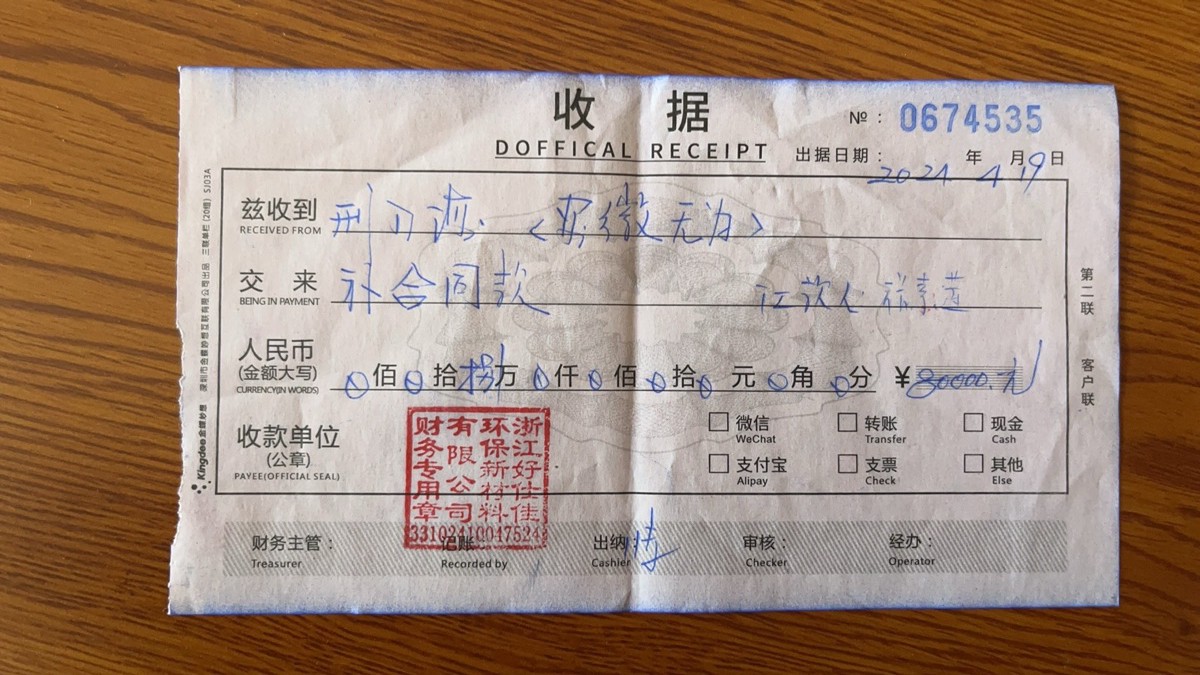 收 据
DOFFICAL RECEIPT
№： 0674535
出据日期： 2021 年 4 月 19 日
兹收到
RECEIVED FROM
交 来 补合同款
BEING IN PAYMENT
人民币
(金额大写) 0 佰 0 拾 捌 万 0 仟 0 佰 0 拾 0 元 0 角 0 分 ¥ 80000.元
CURRENCY(IN WORDS)
收款单位
(公章)
PAYEE(OFFICIAL SEAL)
浙江好仕佳
环保新材料
有限公司
财务专用章
33102410047524
微信 转账 现金
WeChat Transfer Cash
支付宝 支票 其他
Alipay Check Else
财务主管： 记账 出纳： 审核： 经办：
Treasurer Recorded by Cashier Checker Operator
第二联 客户联
Kingdee金蝶妙想 深圳市金蝶妙想互联有限公司出品 三联单栏 (20组) SJ03A